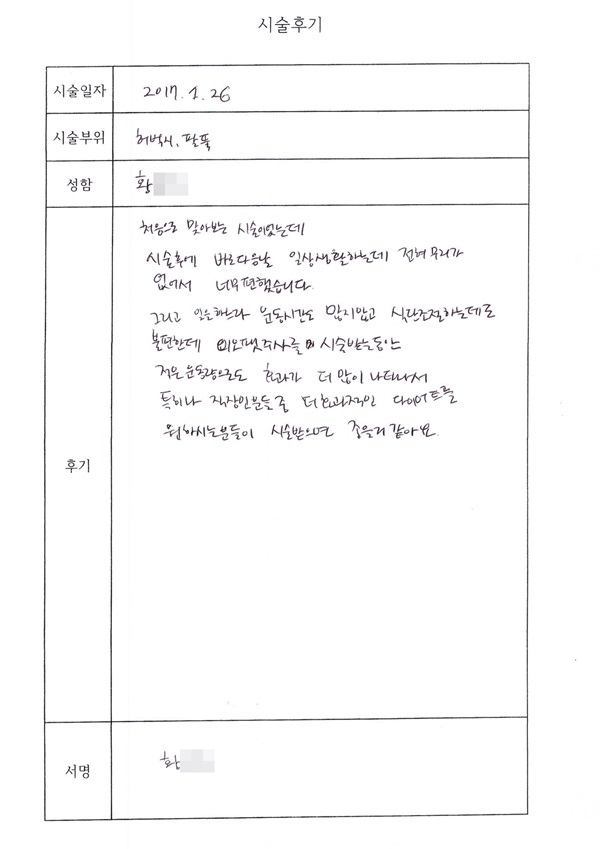 시술후기
시술일자 2017. 1. 26
시술부위 허벅지, 팔뚝
성함 황
처음으로 맞아보는 시술이었는데
시술후에 바로다음날 일상생활하는데 전혀무리가
없어서 너무편했습니다.
그리고 일을하느라 운동시간도 많지않고 식단조절하는데도
불편한데 주사를 시술받는동안
적은운동량으로도 효과가 더 많이 나타나서
특히나 직장인분들 중 더효과적인 다이어트를
원하시는분들이 시술받으면 좋을거같아요.
후기
서명 황